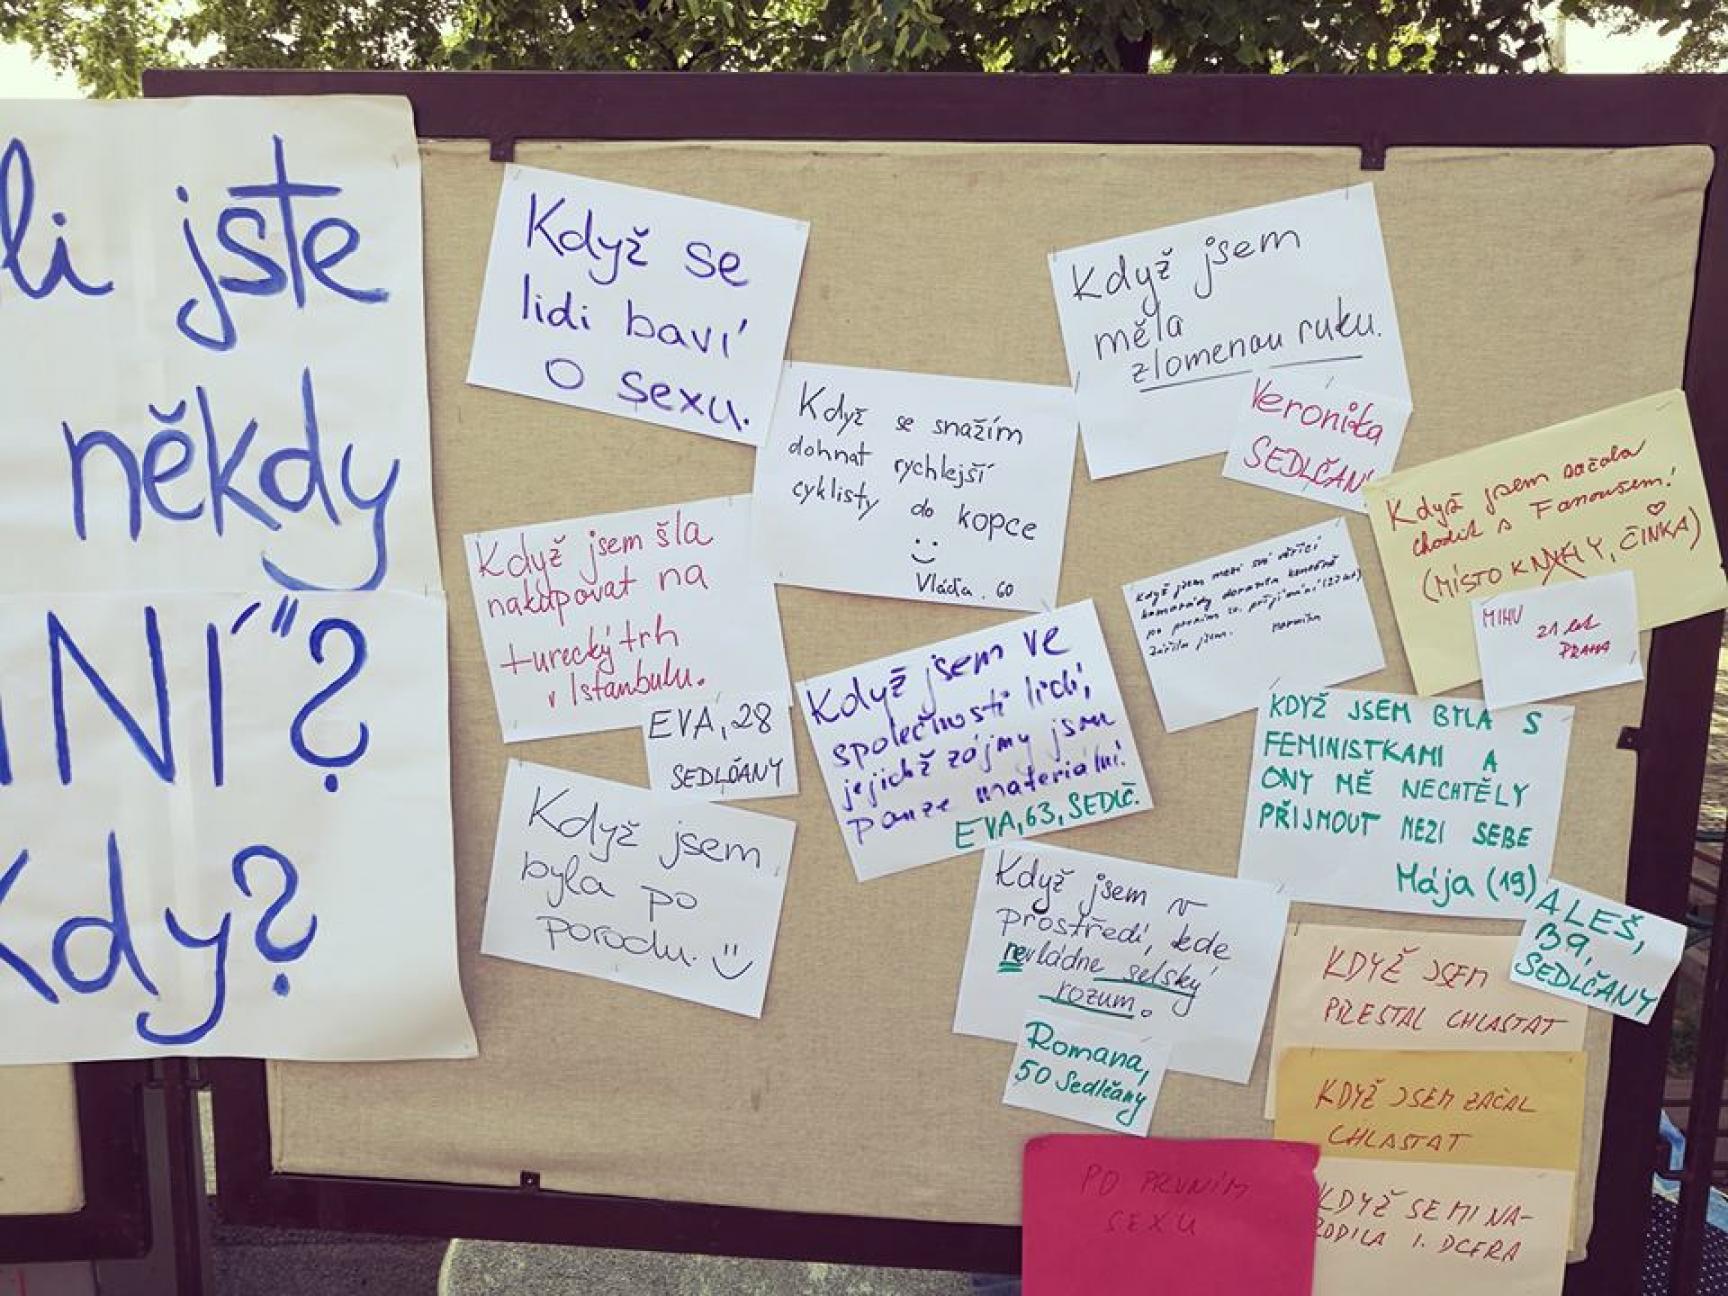 li jste
někdy
NÍ"?
Kdy?
Když se
lidi baví
o sexu.
Když jsem
měla
zlomenou ruku.
Veronika
SEDLČAN
Když se snažím
dohnat rychlejší
cyklisty do kopce
Vláďa. 60
Když jsem šla
nakupovat na
turecký trh
v Istanbulu.
EVA, 28
SEDLČANY
Když jsem začala
chodit s Fanoušem!
(MÍSTO KNIHLY, ČINKA)
MIHU
21 let
PRAHA
Když jsem mezi své věřící
kamarády dorazila konečně
po prvním sv. přijímání (27 let)
zářila jsem.
Když jsem ve
společnosti lidí,
jejichž zájmy jsou
pouze materiální.
EVA, 63, SEDLČ.
KDYŽ JSEM BYLA S
FEMINISTKAMI A
ONY MĚ NECHTĚLY
PŘIJMOUT MEZI SEBE
Mája (19)
Když jsem
byla po
porodu.
Když jsem v
prostředí, kde
nevládne selský
rozum.
Romana,
50 Sedlčany
ALEŠ,
39,
SEDLČANY
KDYŽ JSEM
PŘESTAL CHLASTAT
KDYŽ JSEM ZAČAL
CHLASTAT
KDYŽ SE MI NA-
RODILA 1. DCERA
PO PRVNÍM
SEXU